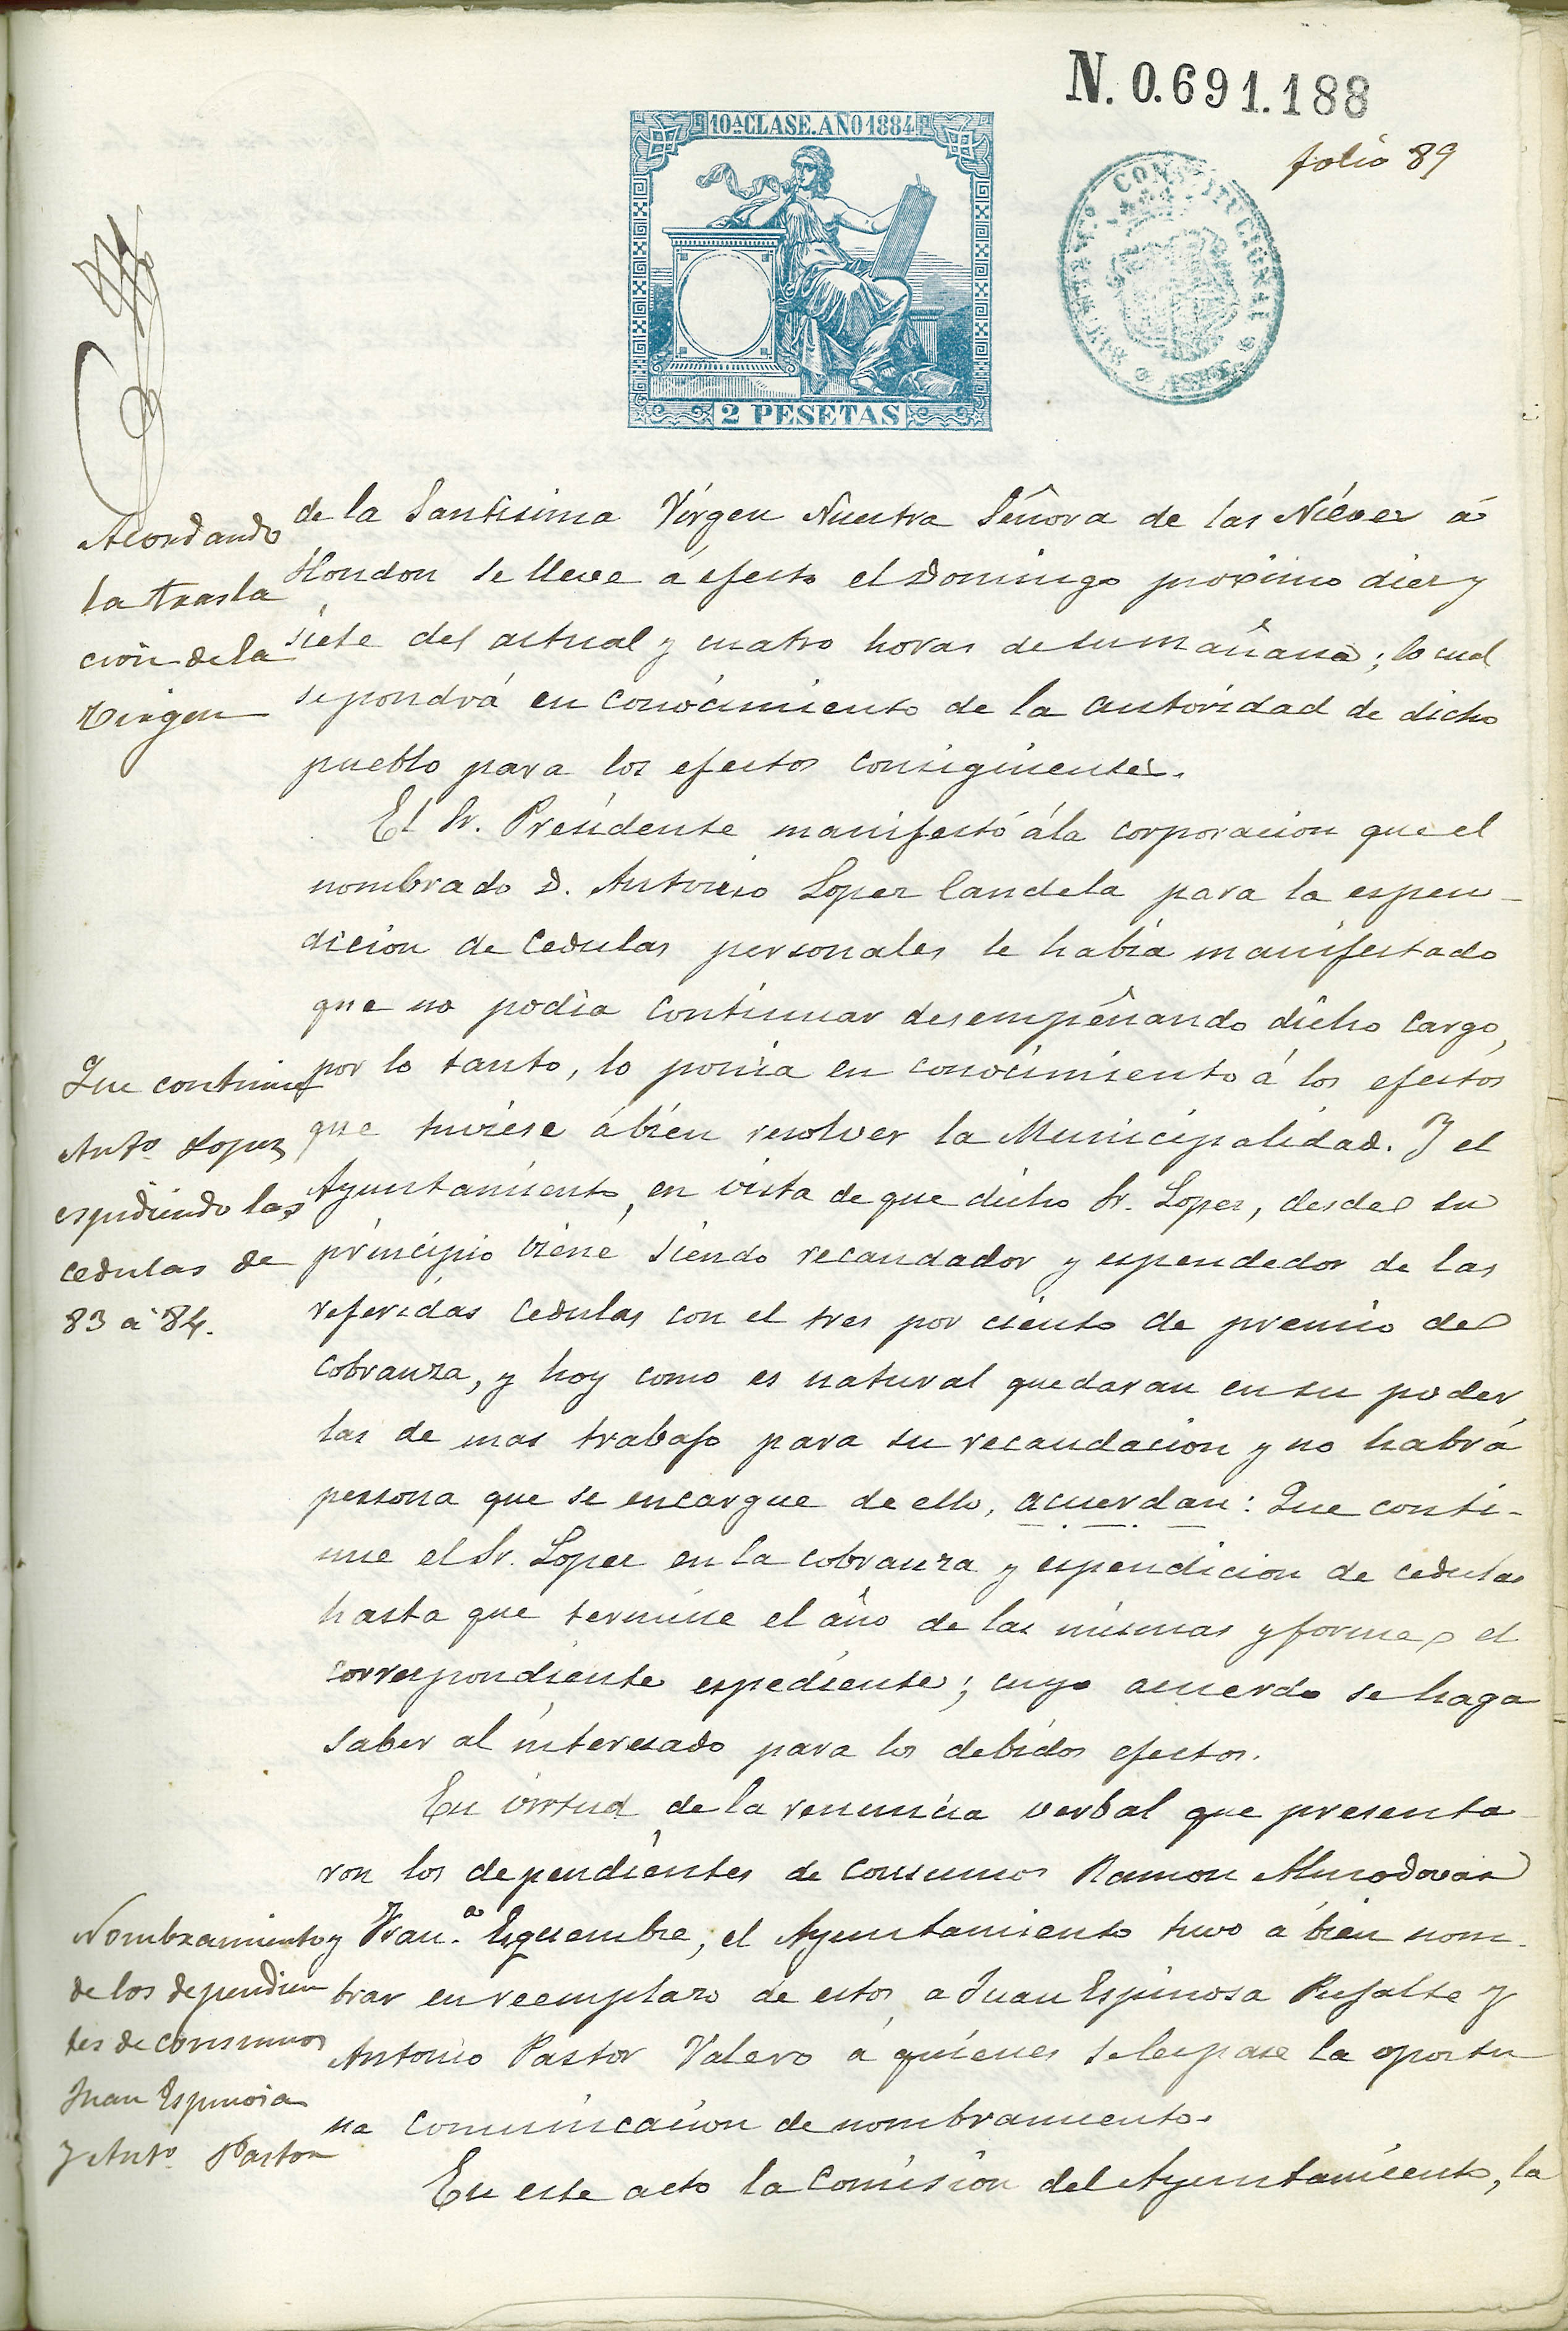 N. 0.691.188
folio 89
10ª CLASE. AÑO 1884
2 PESETAS
CONSTITUCIONAL
Acordando
la trasla
ción de la
Virgen
de la Santisima Vírgen Nuestra Señora de las Niéves á
Hondon se lleve á efecto el Domingo proximo diez y
siete del actual y cuatro horas de su mañana; lo cual
se pondrá en conocimiento de la autoridad de dicho
pueblo para los efectos consiguientes.
El Sr. Presidente manifestó á la corporacion que el
nombrado D. Antonio Lopez Candela para la espen-
dicion de cedulas personales le habia manifestado
que no podia continuar desempeñando dicho cargo,
por lo tanto, lo ponia en conocimiento á los efectos
que tuviese á bien resolver la Municipalidad. Y el
Ayuntamiento, en vista de que dicho Sr. Lopez, desde su
principio viene siendo recaudador y espendedor de las
referidas cedulas con el tres por ciento de premio de
cobranza, y hoy como es natural quedaran en su poder
las de mas trabajo para su recaudacion y no habrá
persona que se encargue de ello, acuerdan: Que conti-
nue el Sr. Lopez en la cobranza y espendicion de cedulas
hasta que termine el año de las mismas y forme el
correspondiente espediente; cuyo acuerdo se haga
saber al interesado para los debidos efectos.
Que continue
Antº Lopez
espidiendo las
cedulas de
83 á 84.
En virtud de la renuncia verbal que presenta
ron los dependientes de consumos Ramon Almodovar
y Fran.co Esquembre, el Ayuntamiento tuvo á bien nom-
brar en reemplazo de estos a Juan Espinosa Rufalte y
Antonio Pastor Valero á quienes se les pase la oportu
na comunicacion de nombramiento.
Nombramiento
de los dependien
tes de consumos
Juan Espinosa
y Antº Pastor
En este acto la Comision del Ayuntamiento, la